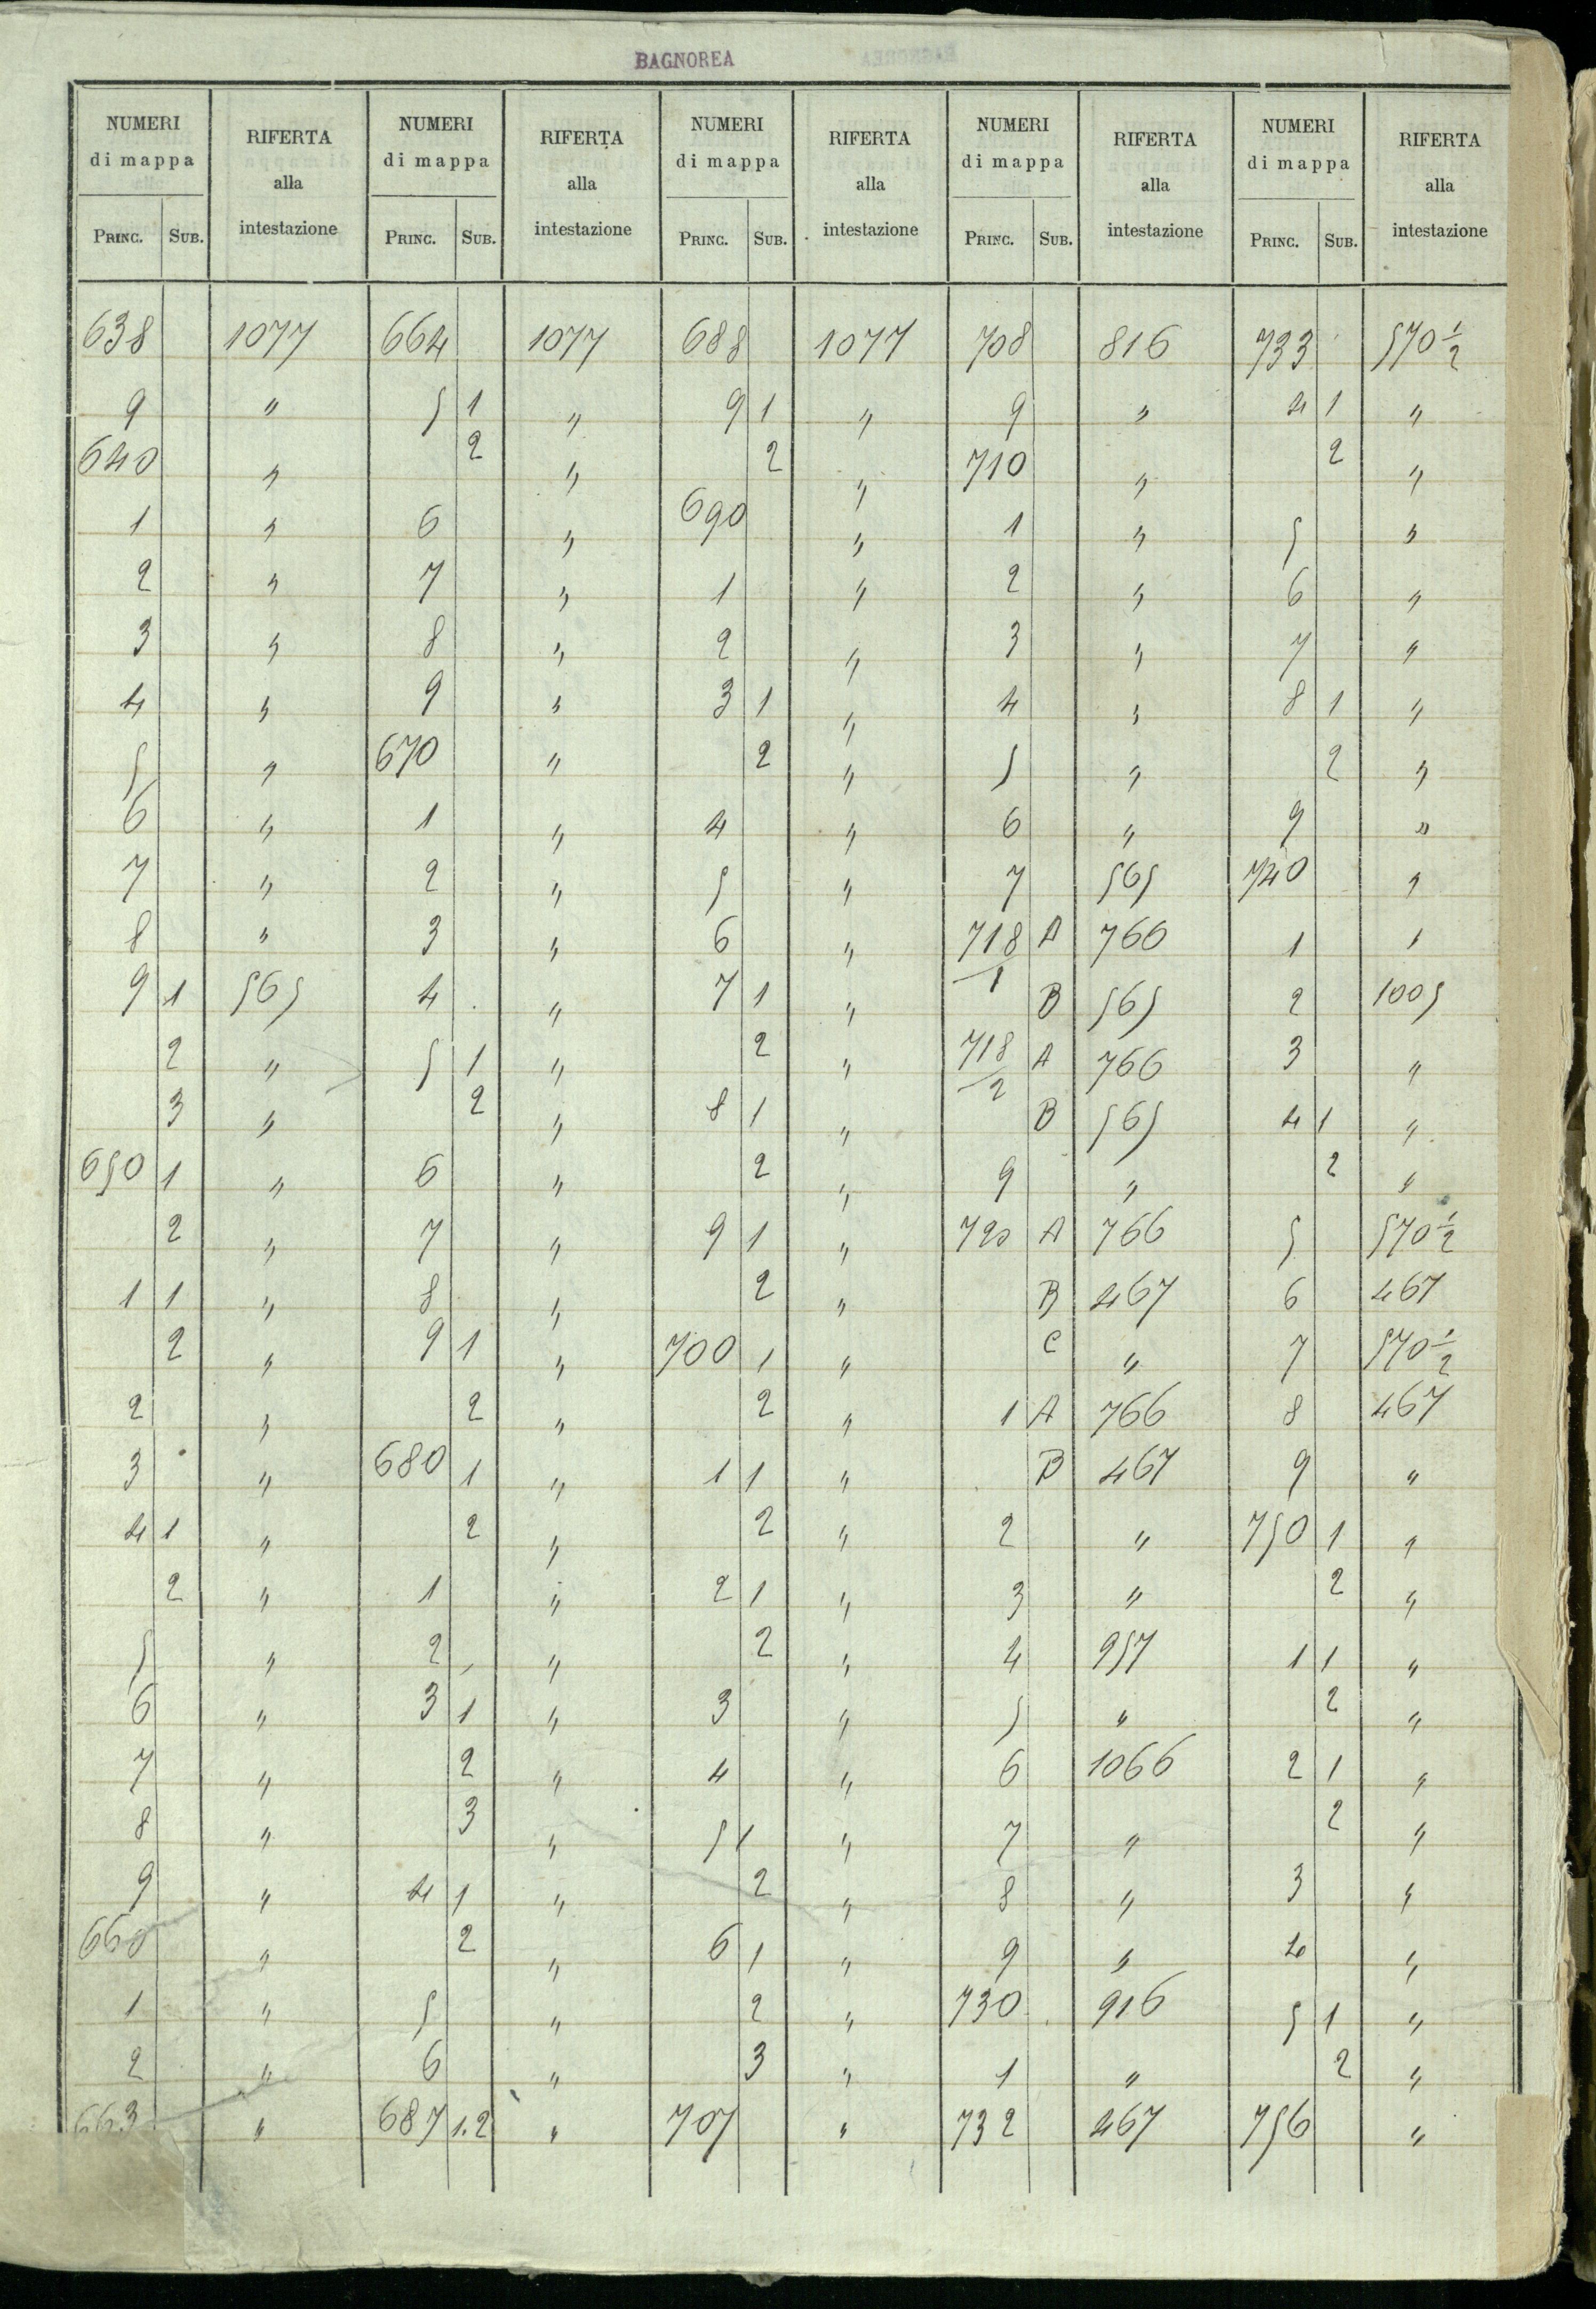 BAGNOREA
NUMERI di mappa RIFERTA alla intestazione NUMERI di mappa RIFERTA alla intestazione NUMERI di mappa RIFERTA alla intestazione NUMERI di mappa RIFERTA alla intestazione NUMERI di mappa RIFERTA alla intestazione
PRINC. SUB. PRINC. SUB. PRINC. SUB. PRINC. SUB. PRINC. SUB.
638 1077 664 1077 688 1077 708 816 733 570 1/2
9 " 5 1 " 9 1 " 9 " 4 1 "
640 " 2 " 2 " 710 " 2 "
1 " 6 " 690 " 1 " 5 "
2 " 7 " 1 " 2 " 6 "
3 " 8 " 2 " 3 " 7 "
4 " 9 " 3 1 " 4 " 8 1 "
5 " 670 " 2 " 5 " 2 "
6 " 1 " 4 " 6 " 9 "
7 " 2 " 5 " 7 565 740 "
8 " 3 " 6 " 718/1 A 766 1 "
9 1 565 4 " 7 1 " B 565 2 1005
2 " 5 1 " 2 " 718/2 A 766 3 "
3 " 2 " 8 1 " B 565 4 1 "
650 1 " 6 " 2 " 9 " 2 "
2 " 7 " 9 1 " 720 A 766 5 570 1/2
1 1 " 8 " 2 " B 467 6 467
2 " 9 1 " 700 1 " C " 7 570 1/2
2 " 2 " 2 " 1 A 766 8 467
3 " 680 1 " 1 1 " B 467 9 "
4 1 " 2 " 2 " 2 " 750 1 "
2 " 1 " 2 1 " 3 " 2 "
5 " 2 " 2 " 4 957 1 1 "
6 " 3 1 " 3 " 5 " 2 "
7 " 2 " 4 " 6 1066 2 1 "
8 " 3 " 5 1 " 7 " 2 "
9 " 4 1 " 2 " 8 " 3 "
660 " 2 " 6 1 " 9 " 4 "
1 " 5 " 2 " 730 916 5 1 "
2 " 6 " 3 " 1 " 2 "
663 " 687 1.2 " 707 " 732 467 756 "